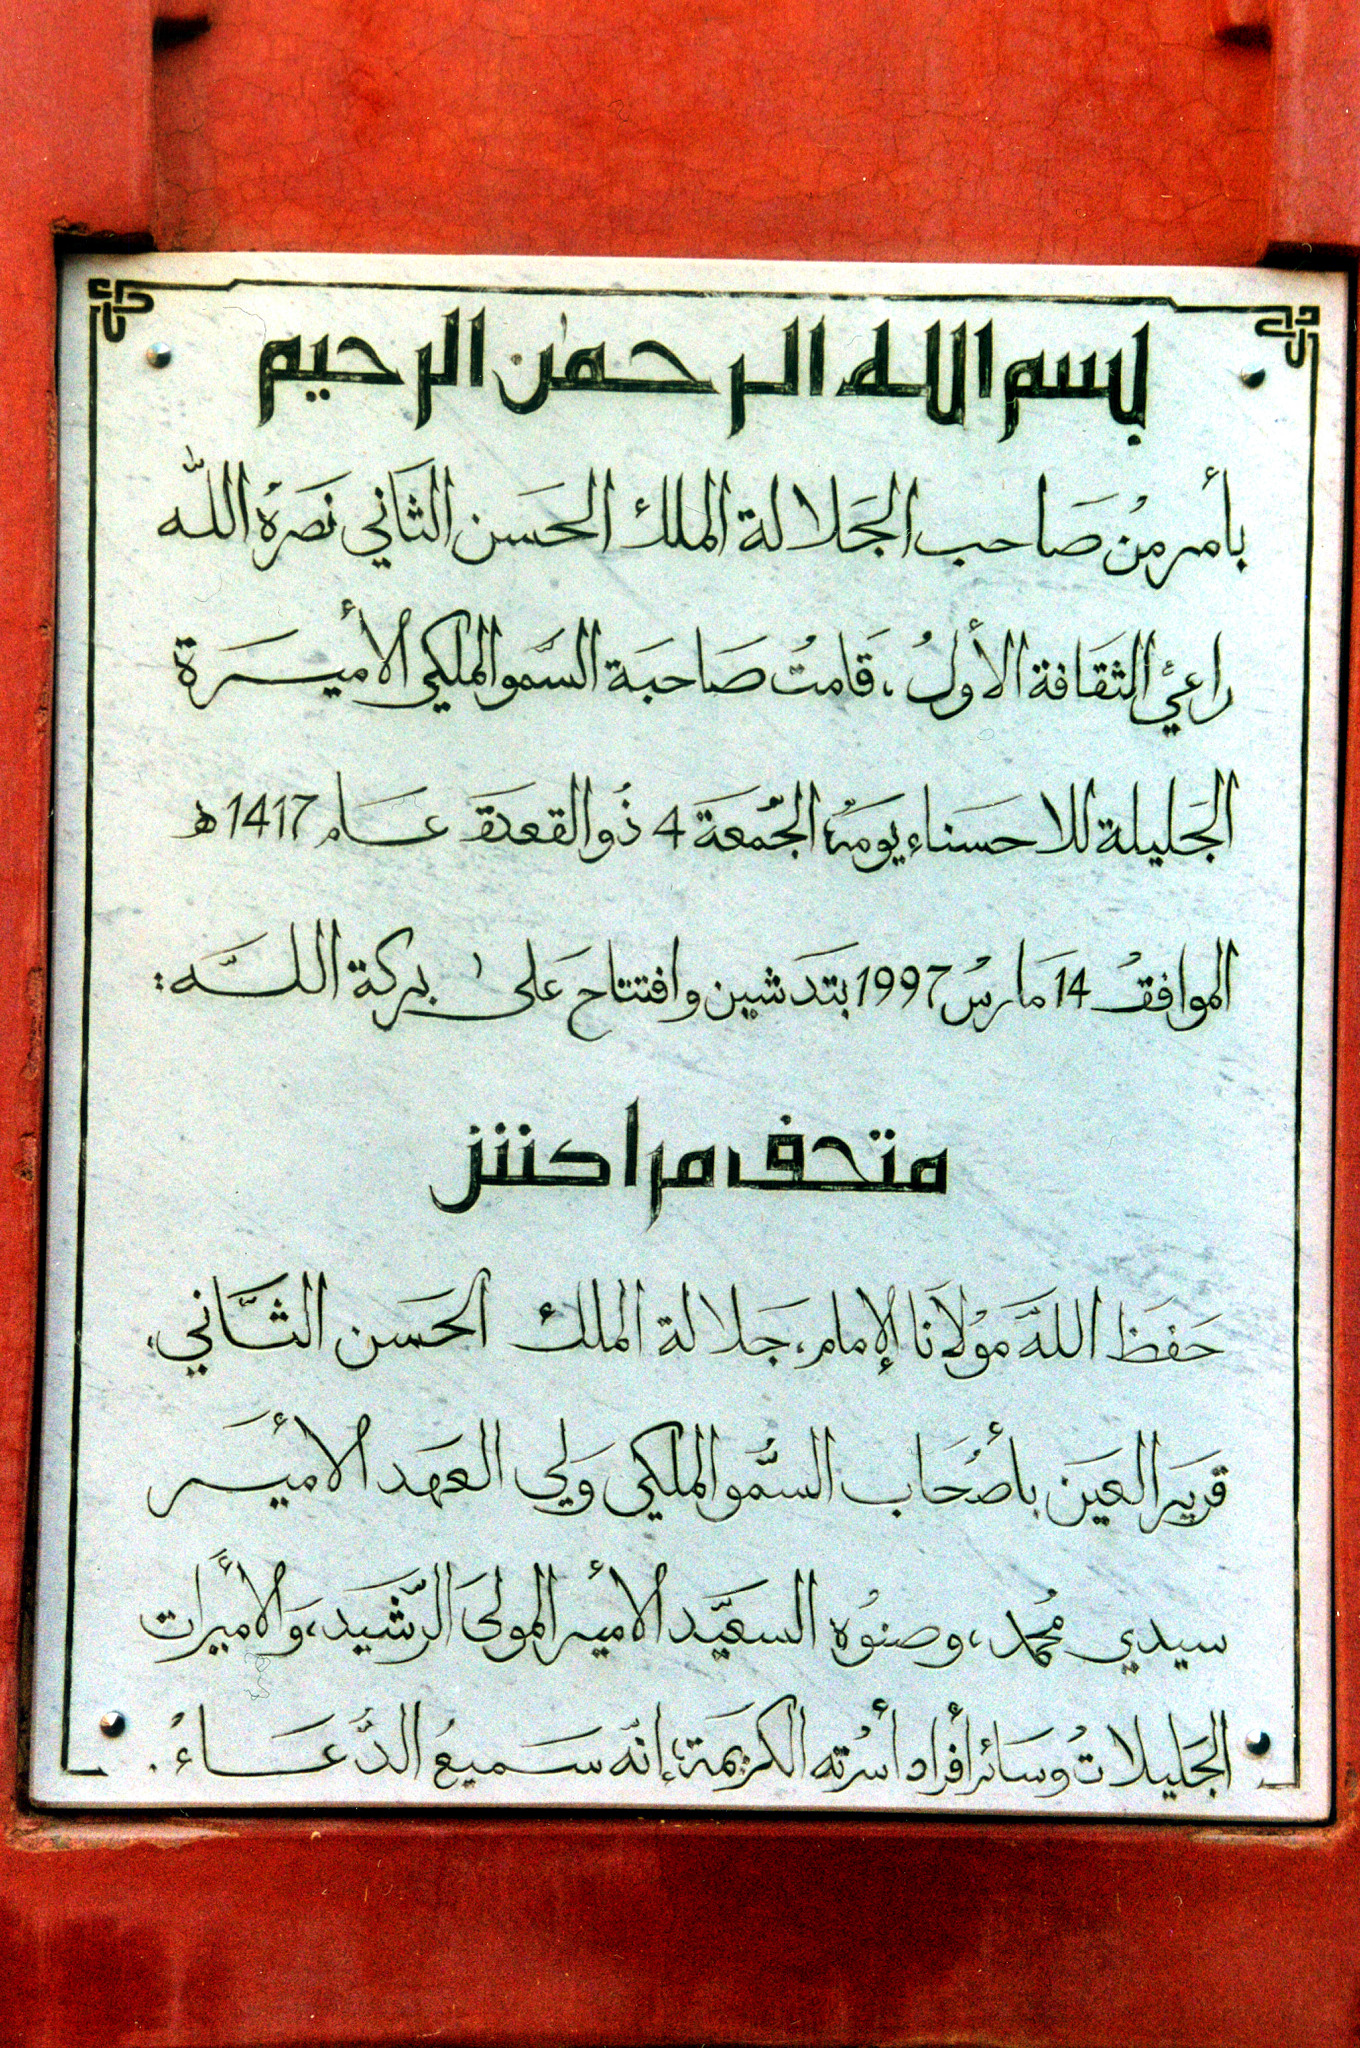 بسم الله الرحمٰن الرحيم
بأمر من صاحب الجَلالة الملك الحَسَن الثَاني نَصَرَهُ اللّه
راعيْ الثقَافة الأولُ، قَامتْ صَاحبَة السَمو الملكي الأميرَة
الجَليلة للاحسَناء يومَهُ الجُمعَة 4 ذُوالقعدَة عَام 1417ﻫ
الموافقْ 14 مَارسْ 1997 بتَدشين وافتتاح عَلىٰ بركة اللَّه:
متحف مراكش
حفَظ اللهَ موْلاَنا الإمام، جَلالة الملك الحَسن الثَّاني،
قرير العَين بأصْحَاب السُّمو الملكي وَلي العَهد الأميَر
سيدي محُمد، وصنوُه السعيَّد الأمير المولىَ الرَّشيَد، وَالأميَرات
الجَليلاتْ وسَائر أفراد أسْرته الكريمَة، إنّه سَميعُ الدُّعَاءْ.